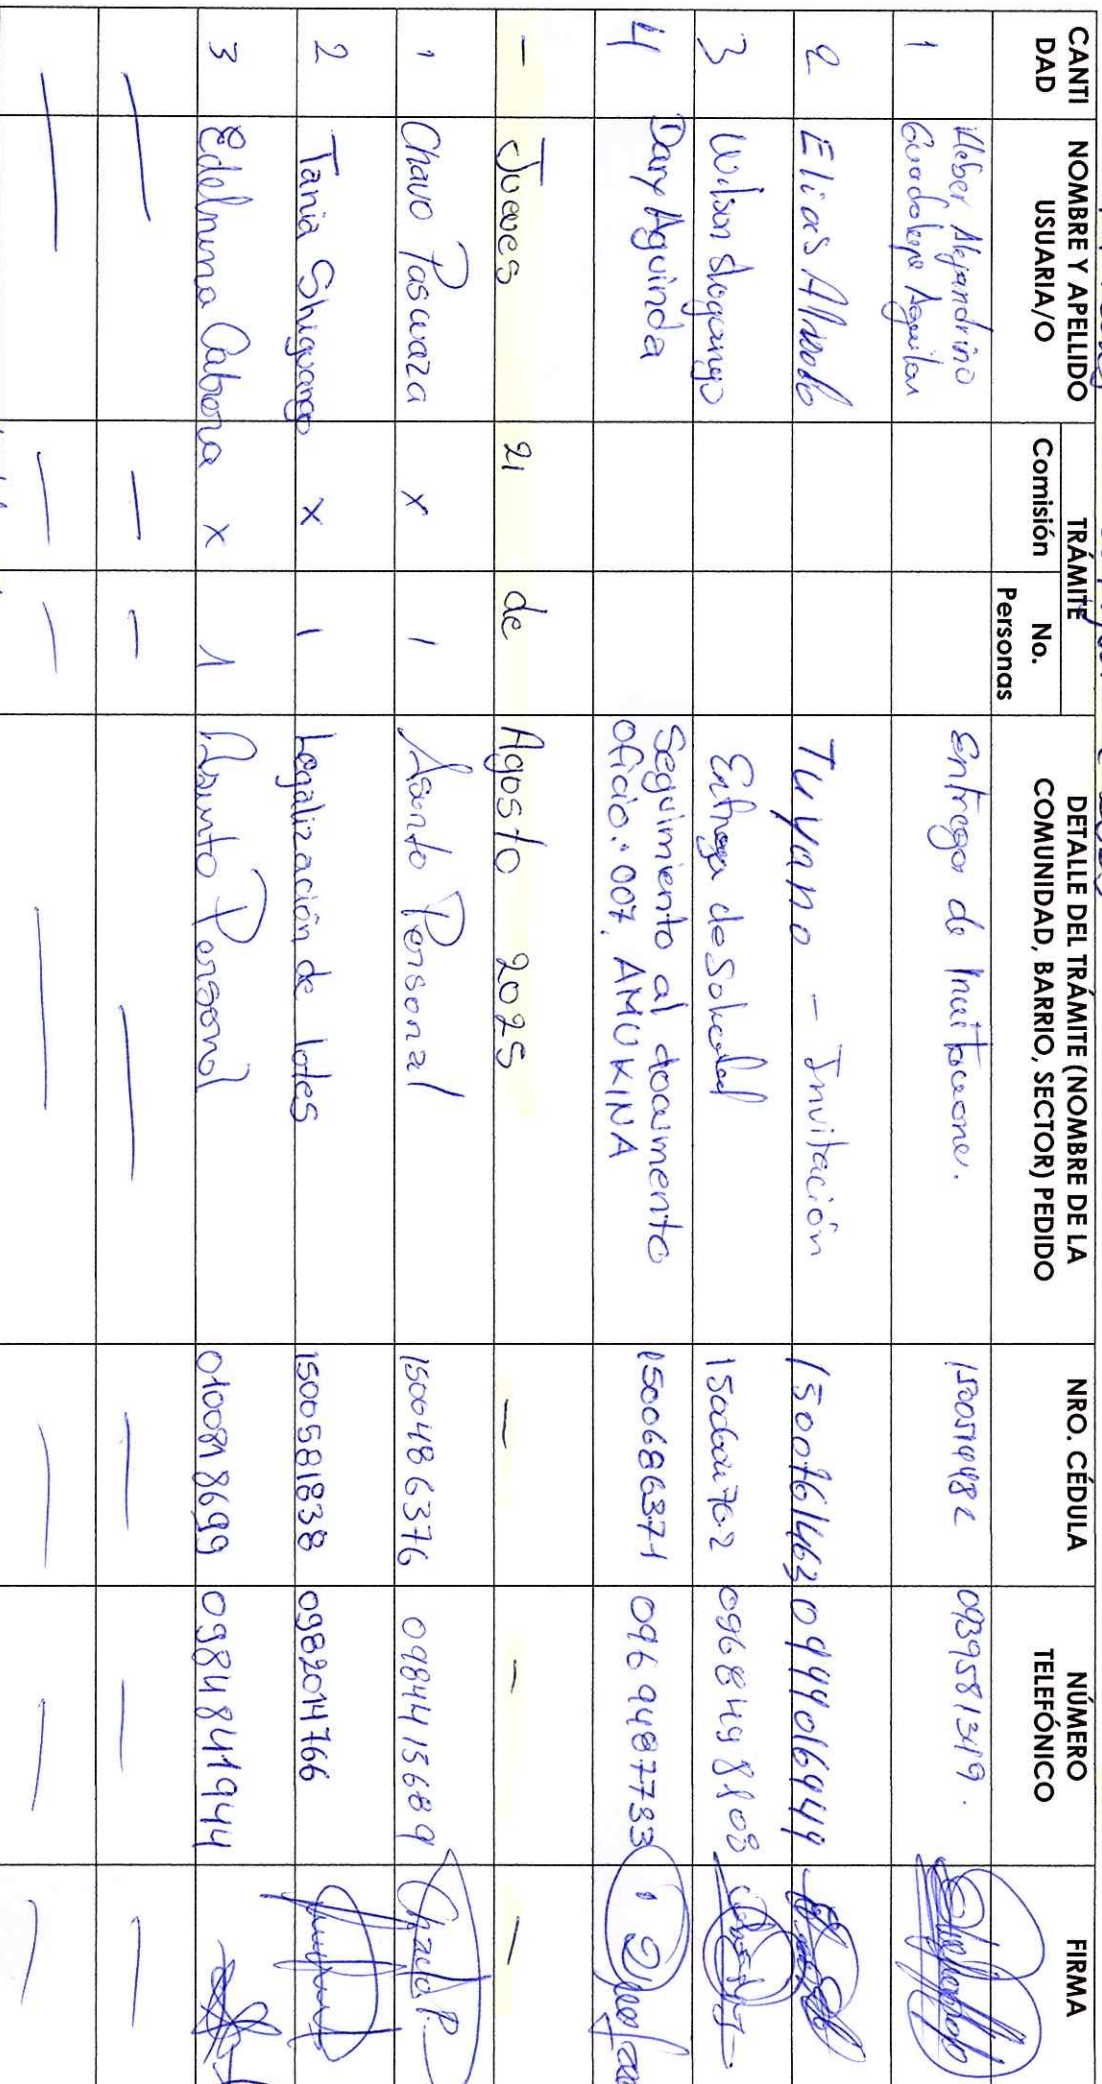 CANTI DAD | NOMBRE Y APELLIDO USUARIA/O | TRÁMITE Comisión | No. Personas | DETALLE DEL TRÁMITE (NOMBRE DE LA COMUNIDAD, BARRIO, SECTOR) PEDIDO | NRO. CÉDULA | NÚMERO TELEFÓNICO | FIRMA
1 Kleber Alejandrino Guadalupe Aguilar Entrega de Invitacione. 0939581349.
2 Elias Tuyano - Invitación 1500761463 0994016949
3 Wilson Entrega de 0968498808
4 Dary Aguinda Seguimiento al documento oficio. 007. AMUKINA 1500686371 0969487733
- Jueves 21 de Agosto 2025 - - -
1 Chavo Pascuaza x 1 Asunto Personal 1500486376 0984415689 Chavo P.
2 Tania Shiguango x 1 Legalización de lotes 1500581838 0982014766
3 Edelmina Cabrera x 1 Asunto Personal 0984841944